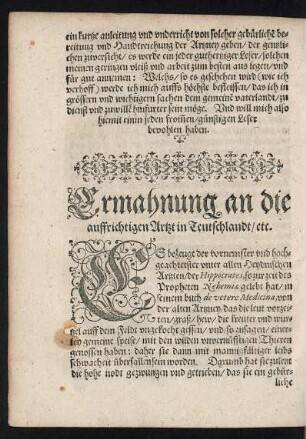 ein kurtze anleitung und underricht von solcher gebürliche be-
reitung und Handtreichung der Artzney geben/ der gentzli-
chen zuversicht/ es werde ein jeder guthertziger Leser/ solchen
meinen geringen vleiß und arbeit zum besten auslegen/ und
für gut annemen: Welchs/ so es geschehen wird (wie ich
verhoff) werde ich mich auffs höchste befleissen/ das ich in
grössern und wichtigern sachen dem gemeinē vaterlandt/ zu
dienst und zu will hinfürter sein möge. Und will mich also
hiemit einen jeden frommen/ günstigen Leser
bevohlen haben.
Ermahnung an die
auffrichtigen Artzt in Teutschlandt/ etc.
ES bezeugt der vornemster und hoch-
geachtester unter allen Heydnischen
Artzten/ der Hippocrates, so zur zeit des
Propheten Nehemia gelebt hat/ in
seinem buch de vetere Medicina, von
der alten Artzney/ das die leut vorzei-
ten/ graß/ hew/ die kreuter und wur-
tzel auff dem Feldt ungekocht gessen/ und so zusagen/ einer-
ley gemeine speise/ mit den wilden unvernünfftigen Thieren
genossen haben: daher sie dann mit mannigfaltiger leibs
schwacheit überfallen sein worden. Derumb hat sie zulest
die hohe nodt gezwungen und getrieben/ das sie ein gebür-
liche